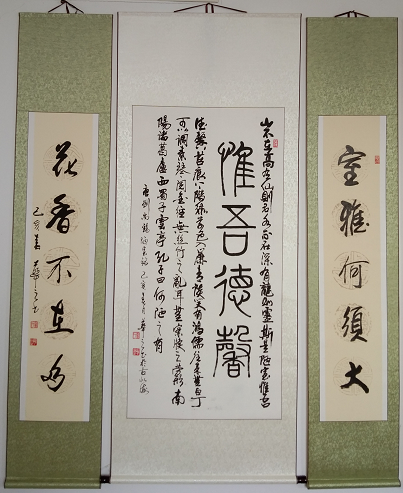 室雅何須大
惟吾德馨
山不在高有仙則名水不在深有龍則靈斯是陋室惟吾
德馨苔痕上階綠草色入簾青談笑有鴻儒往來無白丁
可以調素琴閱金經無絲竹之亂耳無案牘之勞形南
陽諸葛廬西蜀子雲亭孔子曰何陋之有
唐劉禹錫陋室銘 己亥春月
花香不在多
己亥春